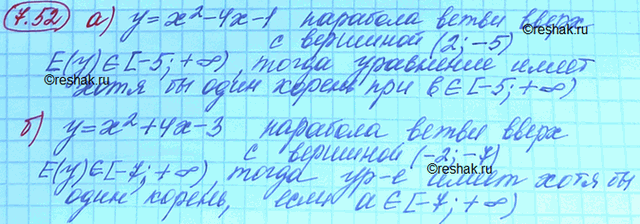 7.52 а) y = x² - 4x - 1 парабола ветви вверх
с вершиной (2; -5)
E(y) ∈ [-5; +∞), тогда уравнение имеет
хотя бы один корень при b ∈ [-5; +∞)
©reshak.ru ©reshak.ru
б) y = x² + 4x - 3 парабола ветви вверх
с вершиной (-2; -7)
E(y) ∈ [-7; +∞), тогда ур-е имеет хотя бы
©reshak.ru ©reshak.ru
один корень, если a ∈ [-7; +∞)